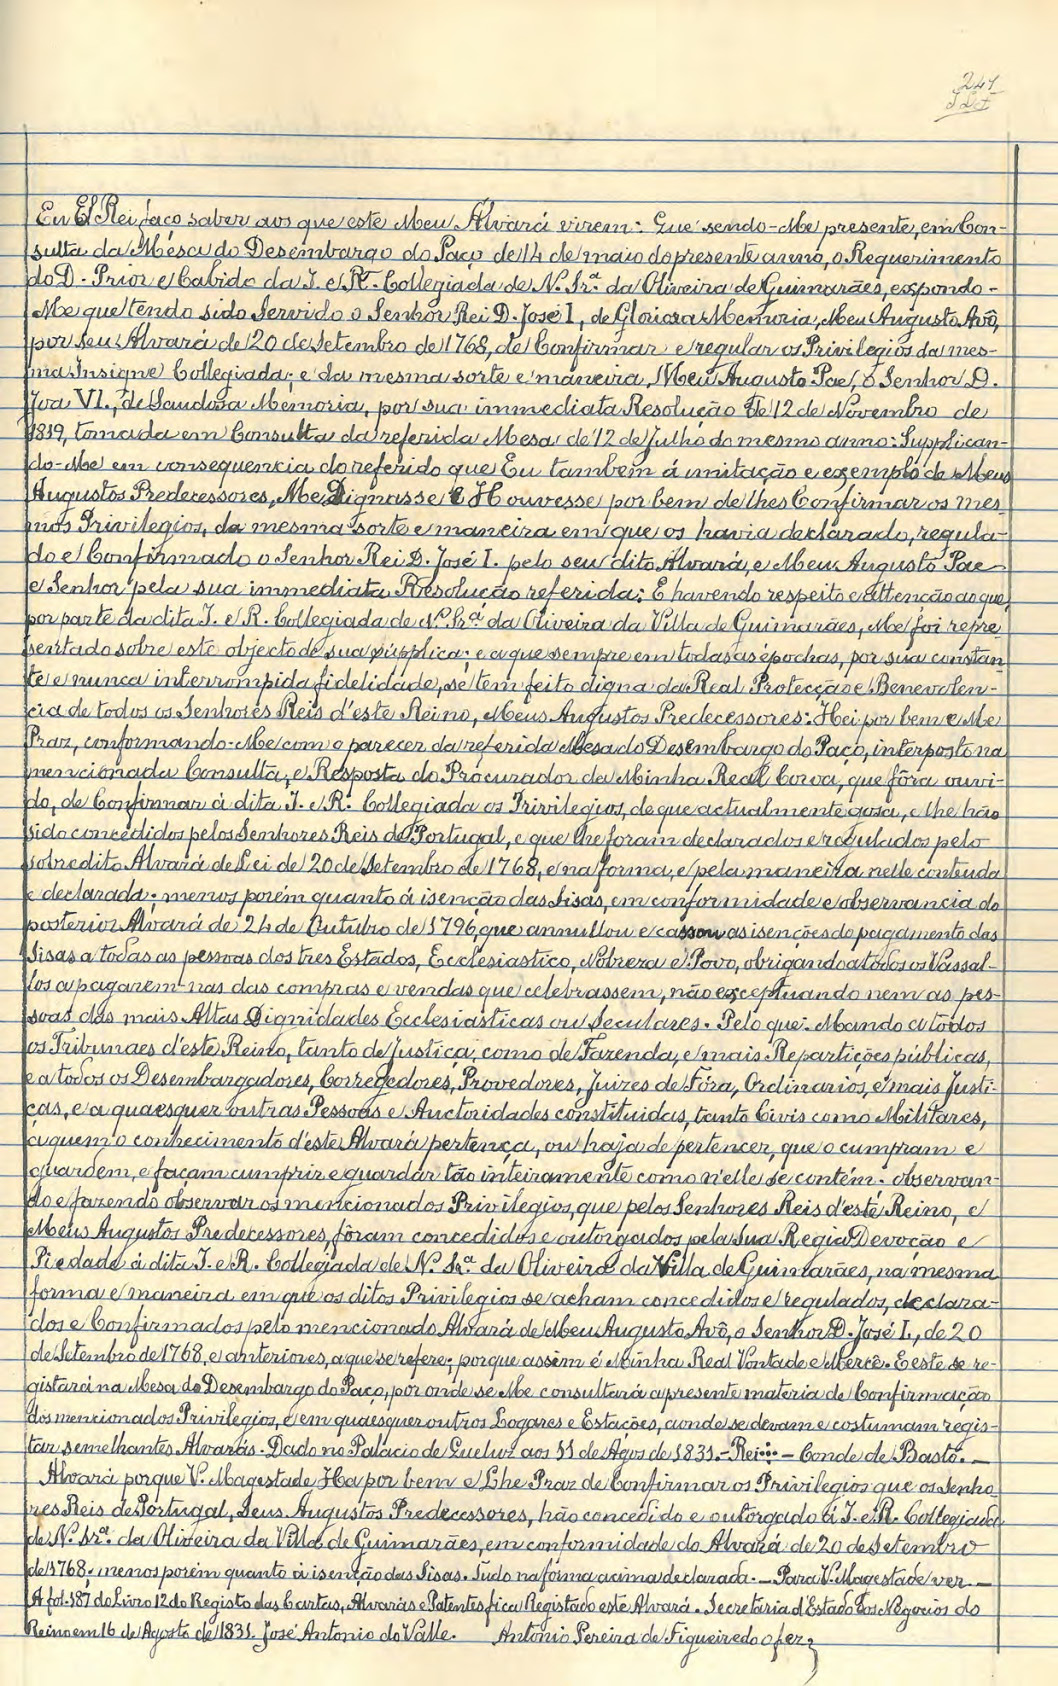 247
Eu El Rei faço saber aos que este Meu Alvará virem: Que sendo-Me presente, em Con-
sulta da Mésa do Desembargo do Paço de 14 de maio do presente anno, o Requerimento
do D. Prior e Cabido da I. e Rl. Collegiada de N. Sr.ª da Oliveira de Guimarães, expondo-
Me que tendo sido Servido o Senhor Rei D. José I, de Gloriosa Memoria, Meu Augusto Avô,
por seu Alvará de 20 de Setembro de 1768, de Confirmar e regular os Privilegios da mes-
ma Insigne Collegiada; e da mesma sorte e maneira, Meu Augusto Pae, o Senhor D.
Joa VI., de Saudosa Memoria, por sua immediata Resolução de 12 de Novembro de
1819, tomada em Consulta da referida Mesa de 12 de Julho do mesmo anno: Supplican-
do-Me em consequencia do referido que Eu tambem á imitação e exemplo de Meus
Augustos Predecessores, Me Dignasse e Houvesse por bem de lhes Confirmar os mes-
mos Privilegios, da mesma sorte e maneira em que os havia declarado, regula-
do e Confirmado o Senhor Rei D. José I. pelo seu dito Alvará, e Meu Augusto Pae
e Senhor pela sua immediata Resolução referida: E havendo respeito e attenção ao que,
por parte da dita I. e R. Collegiada de N. Sr.ª da Oliveira da Villa de Guimarães, Me foi repre
sentado sobre este objecto de sua supplica; e a que sempre em todas as épochas, por sua constan
te e nunca interrompida fidelidade, se tem feito digna da Real Protecção e Benevolen-
cia de todos os Senhores Reis d'este Reino, Meus Augustos Predecessores: Hei por bem e Me
Praz, conformando-Me com o parecer da referida Mesa do Desembargo do Paço, interposto na
mencionada Consulta, e Resposta do Procurador da Minha Real Coroa, que fôra ouvi-
do, de Confirmar á dita I. e R. Collegiada os Privilegios, de que actualmente gosa, e lhe hão
sido concedidos pelos Senhores Reis de Portugal, e que lhe foram declarados e regulados pelo
sobredito Alvará de Lei de 20 de Setembro de 1768, e na forma, e pela maneira nelle contenda
e declarada; menos porém quanto á isenção das Sisas, em conformidade e observancia do
posterior Alvará de 24 de Outubro de 1796, que annullou e cassou as isenções do pagamento das
Sisas a todas as pessoas dos tres Estados, Ecclesiastico, Nobreza e Povo, obrigando a todos os Vassal-
los a pagarem-nas das compras e vendas que celebrassem, não exceptuando nem as pes-
soas das mais Altas Dignidades Ecclesiasticas ou Seculares. Pelo que: Mando a todos
os Tribunaes d'este Reino, tanto de Justiça, como de Fazenda, e mais Repartições públicas,
e a todos os Desembargadores, Corregedores, Provedores, Juizes de Fóra, Ordinarios, e mais Justi-
ças, e a quaesquer outras Pessoas e Auctoridades constituidas, tanto Civis como Militares,
a quem o conhecimento d'este Alvará pertença, ou haja de pertencer, que o cumpram e
guardem, e façam cumprir e guardar tão inteiramente como n'elle se contém. observan-
do e fazendo observar os mencionados Privilegios, que pelos Senhores Reis d'este Reino, e
Meus Augustos Predecessores, fôram concedidos e outorgados pela Sua Regia Devoção e
Piedade á dita I. e R. Collegiada de N. Sr.ª da Oliveira da Villa de Guimarães, na mesma
forma e maneira em que os ditos Privilegios se acham concedidos e regulados, declara-
dos e Confirmados pelo mencionado Alvará de Meu Augusto Avô, o Senhor D. José I., de 20
de Setembro de 1768, e anteriores, a que se refere; porque assim é Minha Real Vontade e Mercê. E este se re-
gistará na Mesa do Desembargo do Paço, por onde se Me consultará a presente materia de Confirmação
dos mencionados Privilegios, e em quaesquer outros Logares e Estações, aonde se devam e costumam regis-
tar semelhantes Alvarás. Dado no Palácio de Queluz aos 11 de Agos de 1831. - Rei - Conde de Basto. -
Alvará porque V. Magestade Ha por bem e Lhe Praz de Confirmar os Privilegios que os Senho
res Reis de Portugal, Seus Augustos Predecessores, hão concedido e outorgado á I. e R. Collegiada
de N. Sr.ª da Oliveira da Villa de Guimarães, em conformidade do Alvará de 20 de Setembro
de 1768; menos porém quanto á isenção das Sisas. Tudo na fórma acima declarada. - Para V. Magestade ver. -
A fol. 187 do Livro 12 do Registo das Cartas, Alvarás e Patentes fica Registado este Alvará. Secretaria d'Estado dos Negocios do
Reino em 16 de Agosto de 1831. José Antonio do Valle. Antonio Pereira de Figueiredo o fez.